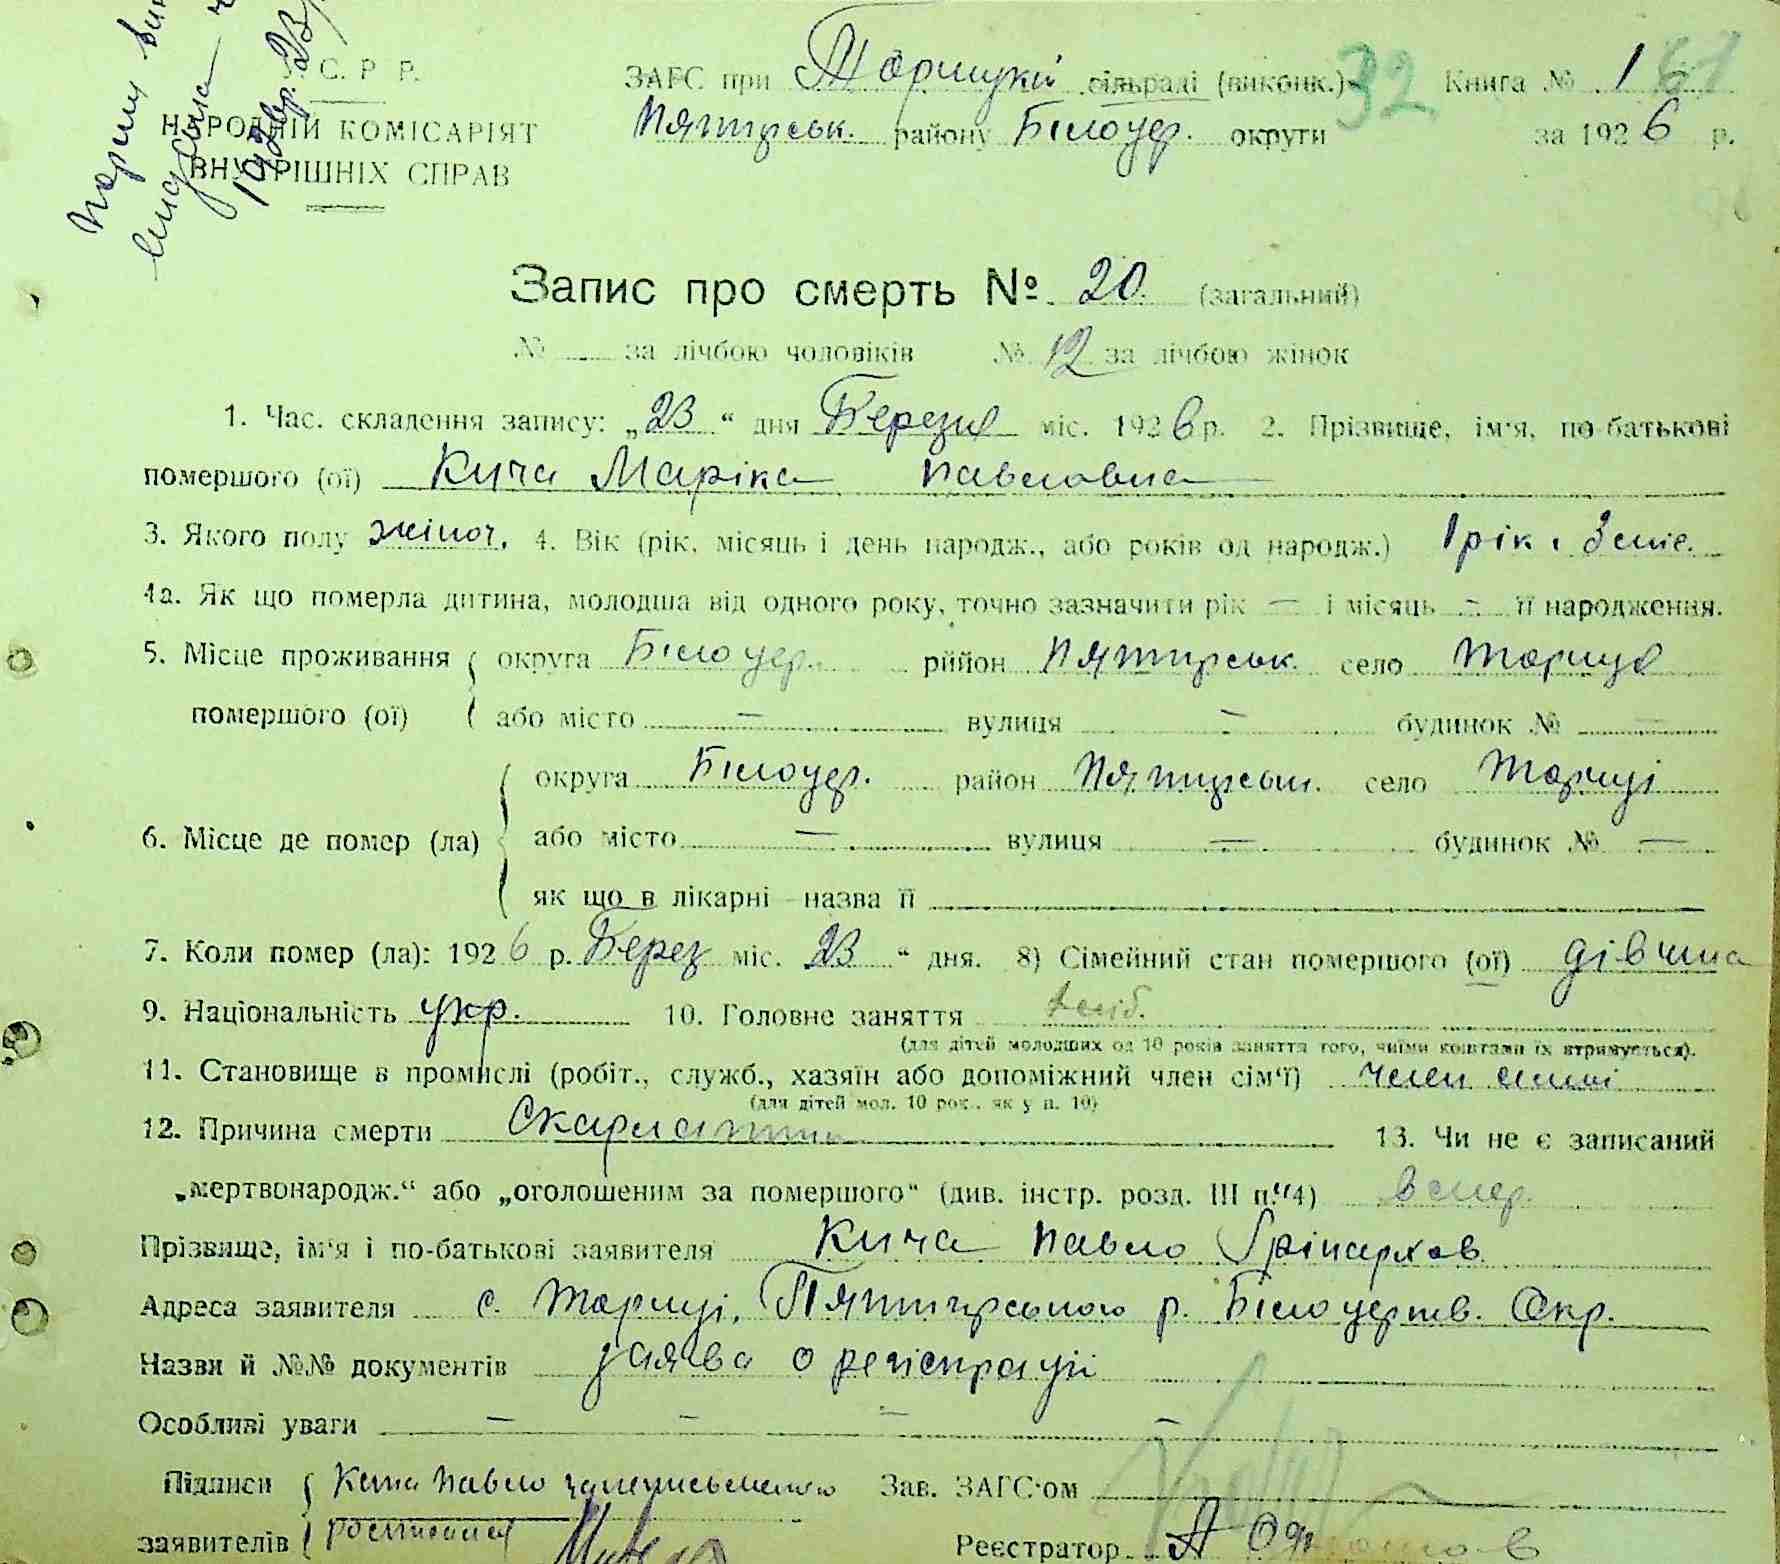 У. С. Р. Р.
НАРОДНІЙ КОМІСАРІЯТ
ВНУТРІШНІХ СПРАВ
ЗАГС при Торицкій сільраді (виконк.) 32 Книга № 1
Пятигірськ. району Білоцер. округи за 1926 р.
Запис про смерть № 20 (загальний)
№ за лічбою чоловіків № 12 за лічбою жінок
1. Час. складення запису: „23“ дня Березня міс. 1926 р. 2. Прізвище, ім'я, по-батькові
помершого (ої) Кича Маріка Павловна
3. Якого полу жіноч. 4. Вік (рік, місяць і день народж., або років од народж.) 1 рік і 3 міс.
4а. Як що померла дитина, молодша від одного року, точно зазначити рік — і місяць - її народження.
5. Місце проживання округа Білоцер. рййон Пятигірськ. селоТориця
помершого (ої) або місто — вулиця — будинок №
округа Білоцер. район Пятигірськ. село Ториці
6. Місце де помер (ла) або місто — вулиця — будинок № —
як що в лікарні - назва її
7. Коли помер (ла): 1926 р. Берез міс. 23 “ дня. 8) Сімейний стан помершого (ої) дівчина
9. Національність укр. 10. Головне заняття хліб.
(для дітей молодших од 10 років заняття того, чиїми коштами їх втримується).
11. Становище в промислі (робіт., служб., хазяїн або допоміжний член сім'ї) член симі
(для дітей мол. 10 рок., як у п. 10)
12. Причина смерти Скарлатина 13. Чи не є записаний
„мертвонародж.“ або „оголошеним за помершого“ (див. інстр. розд. III п. 4) вмер.
Прізвище, ім'я і по-батькові заявителя Кича Павло
Адреса заявителя с. Ториці, Пятигірського р. Білоцерків. Окр.
Назви й №№ документів заява о регістрації
Особливі уваги — — — —
Підписи Кича Павло Зав. ЗАГС'ом
заявителів Реєстратор